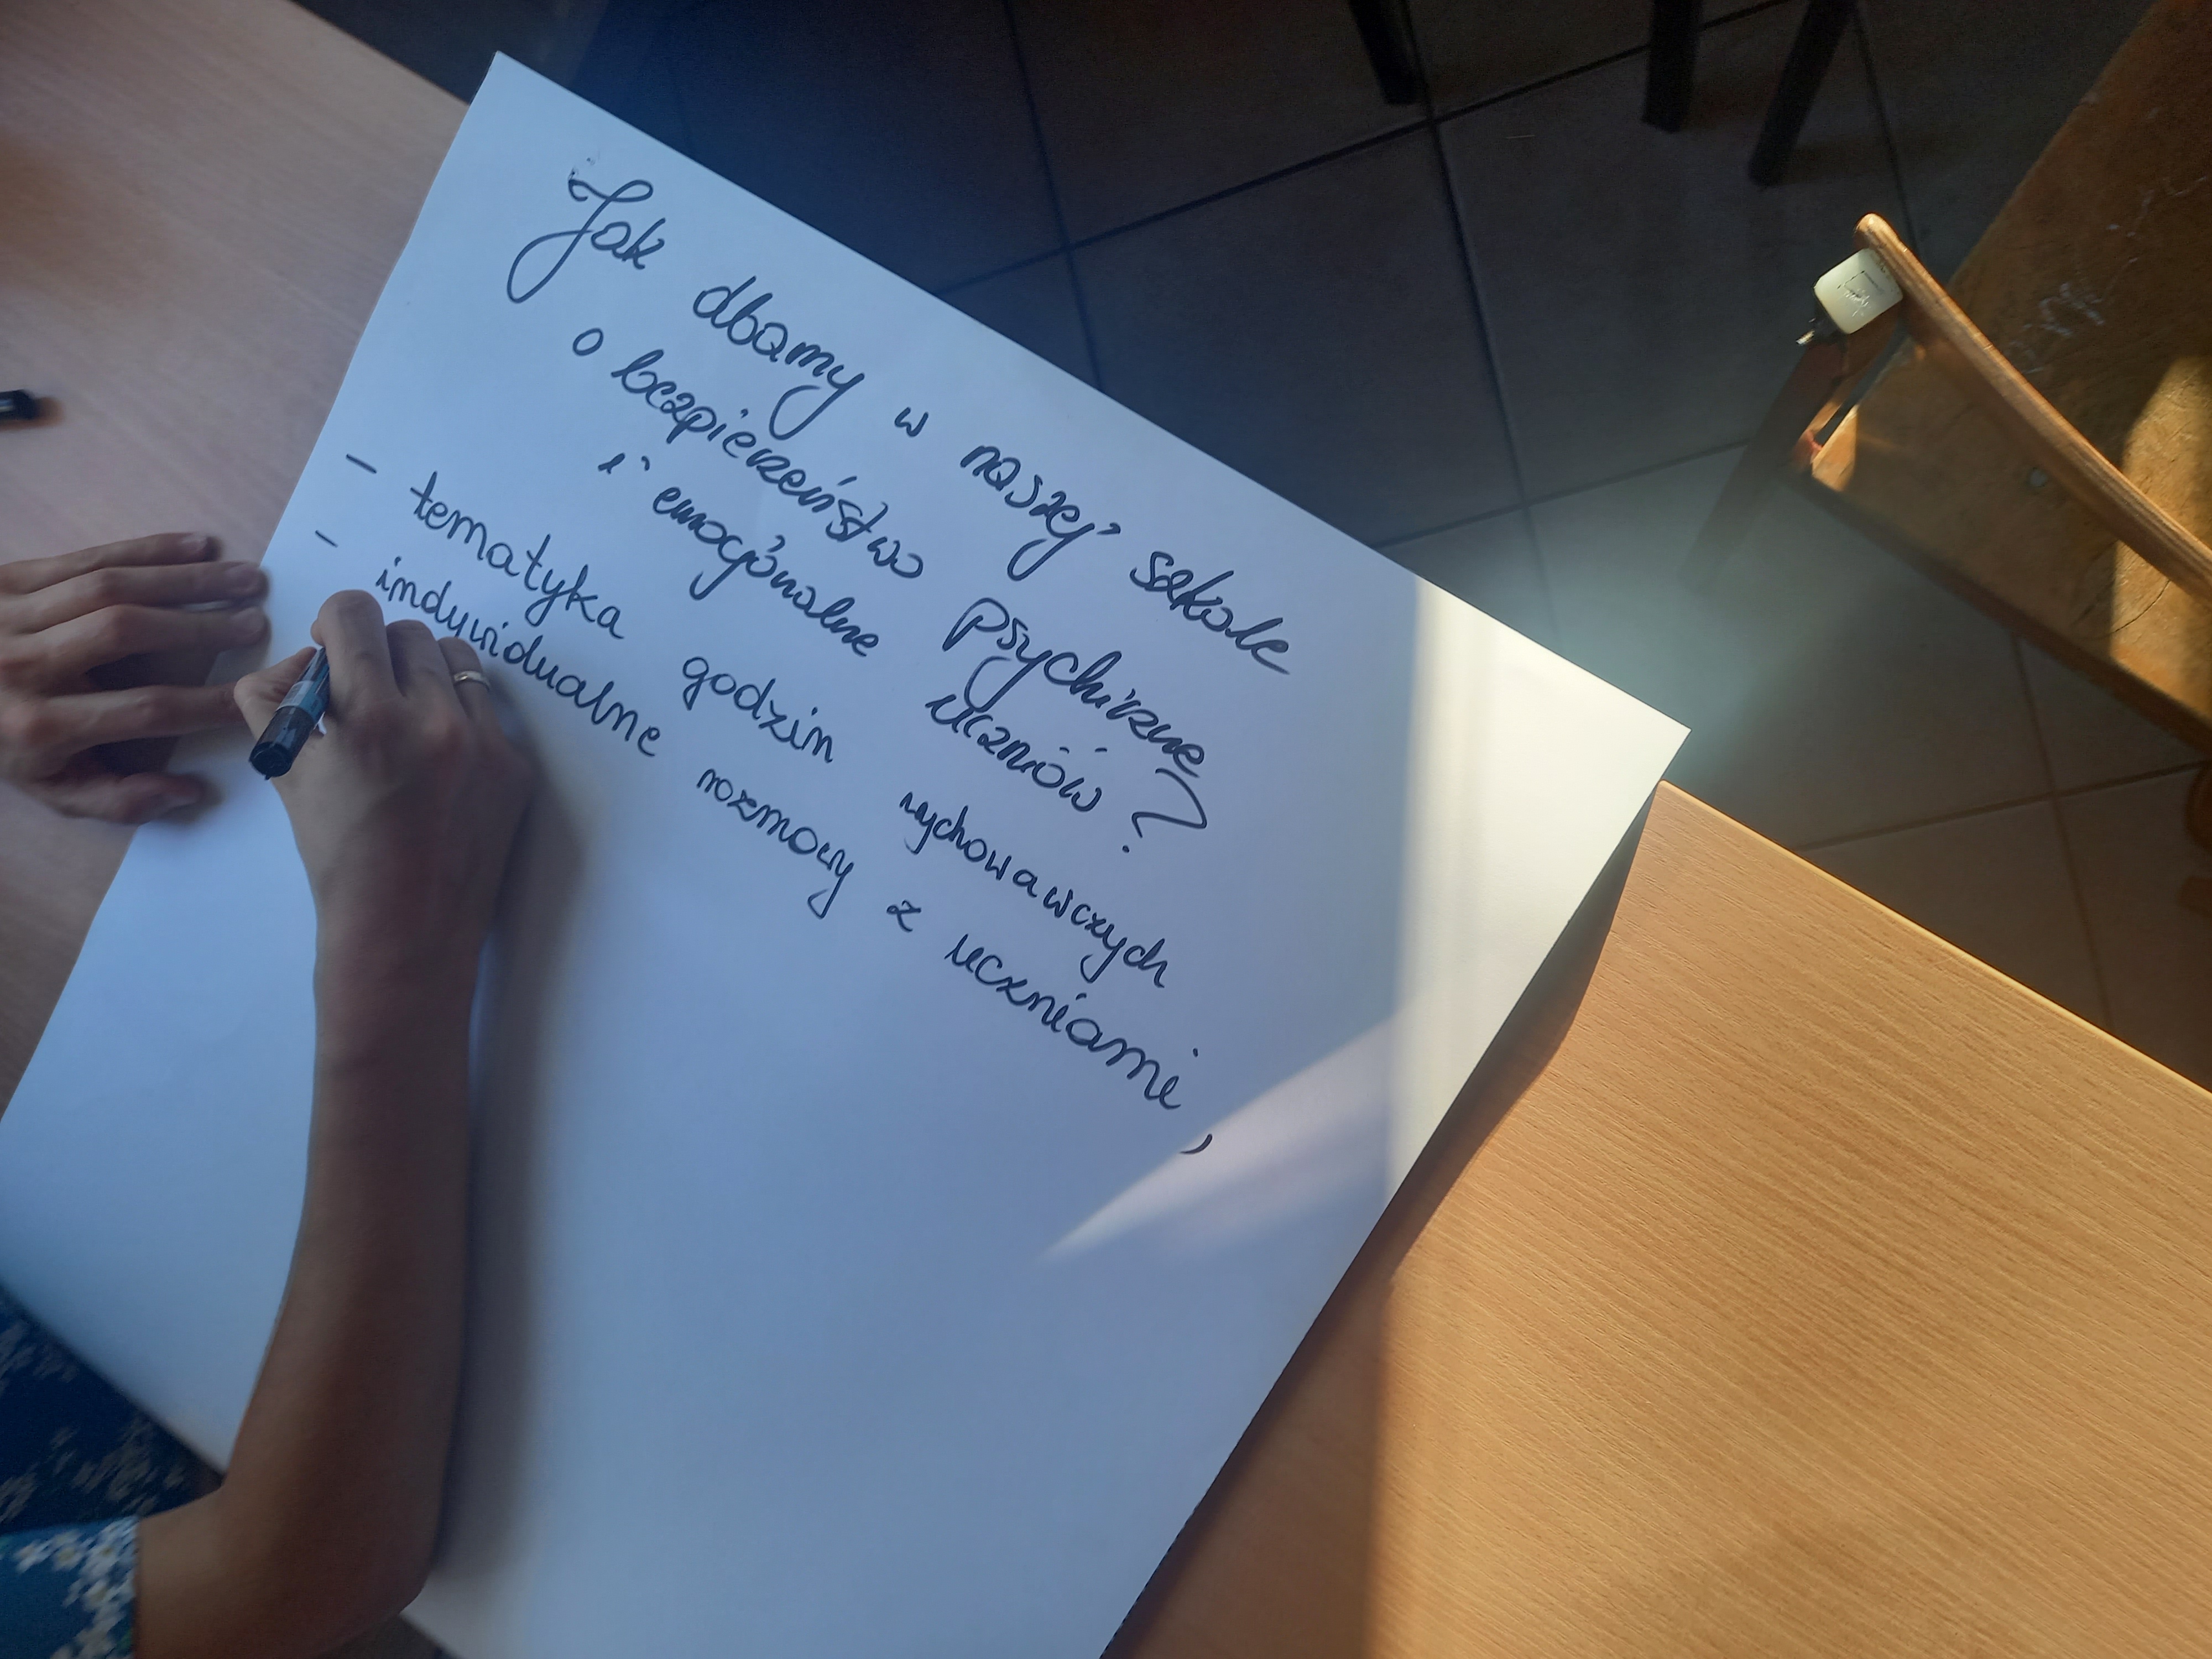 Jak dbamy w naszej szkole
o bezpieczeństwo psychiczne
i emocjonalne uczniów?
- tematyka godzin wychowawczych
- indywidualne rozmowy z uczniami,